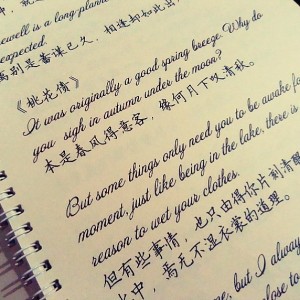 ewell is a long-planne
expected.
离别是蓄谋已久，相逢却如此出
《桃花债》
It was originally a good spring breeze. Why do
you sigh in autumn under the moon?
本是春风得意客，缘何月下叹清秋。
But some things only need you to be awake fo
moment, just like being in the lake, there is
reason to wet your clothes.
但有些事情，也只由得你片刻清醒
中，焉无不湿衣裳的道理。
me, but I always
close to